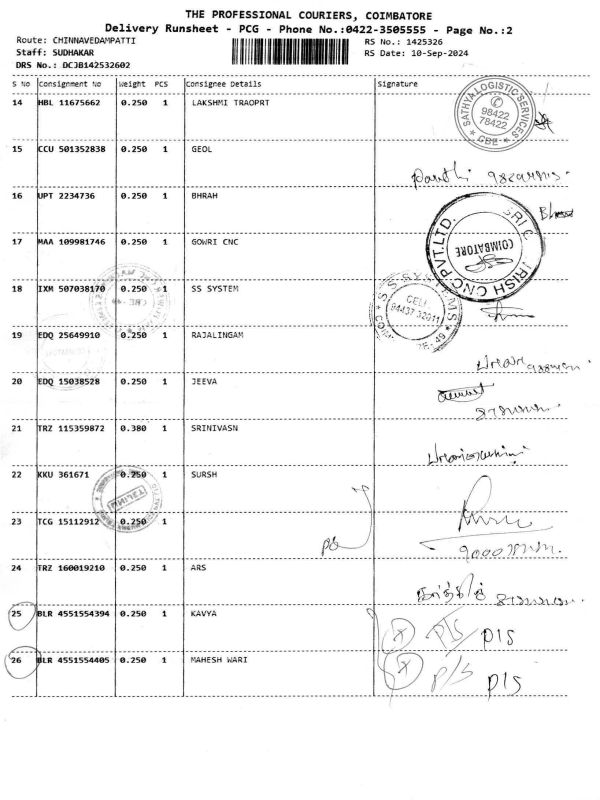 THE PROFESSIONAL COURIERS, COIMBATORE
Delivery Runsheet - PCG - Phone No.:0422-3505555 - Page No.:2
Route: CHINNAVEDAMPATTI
RS No.: 1425326
Staff: SUDHAKAR
RS Date: 10-Sep-2024
DRS No.: DCJB142532602
S No Consignment No Weight PCS Consignee Details Signature
14 HBL 11675662 0.250 1 LAKSHMI TRAOPRT
SATHYA LOGISTIC SERVICES
98422
78422
CBE
15 CCU 501352838 0.250 1 GEOL
16 UPT 2234736 0.250 1 BHRAH
17 MAA 109981746 0.250 1 GOWRI CNC
COIMBATORE
18 IXM 507038170 0.250 1 SS SYSTEM
S.S. SYSTEMS
CELL
94437 32011
19 EDQ 25649910 0.250 1 RAJALINGAM
20 EDQ 15038528 0.250 1 JEEVA
21 TRZ 115359872 0.380 1 SRINIVASN
22 KKU 361671 0.250 1 SURSH
23 TCG 15112912 0.250 1
24 TRZ 160019210 0.250 1 ARS
25 BLR 4551554394 0.250 1 KAVYA P/S P/S
26 BLR 4551554405 0.250 1 MAHESH WARI P/S P/S